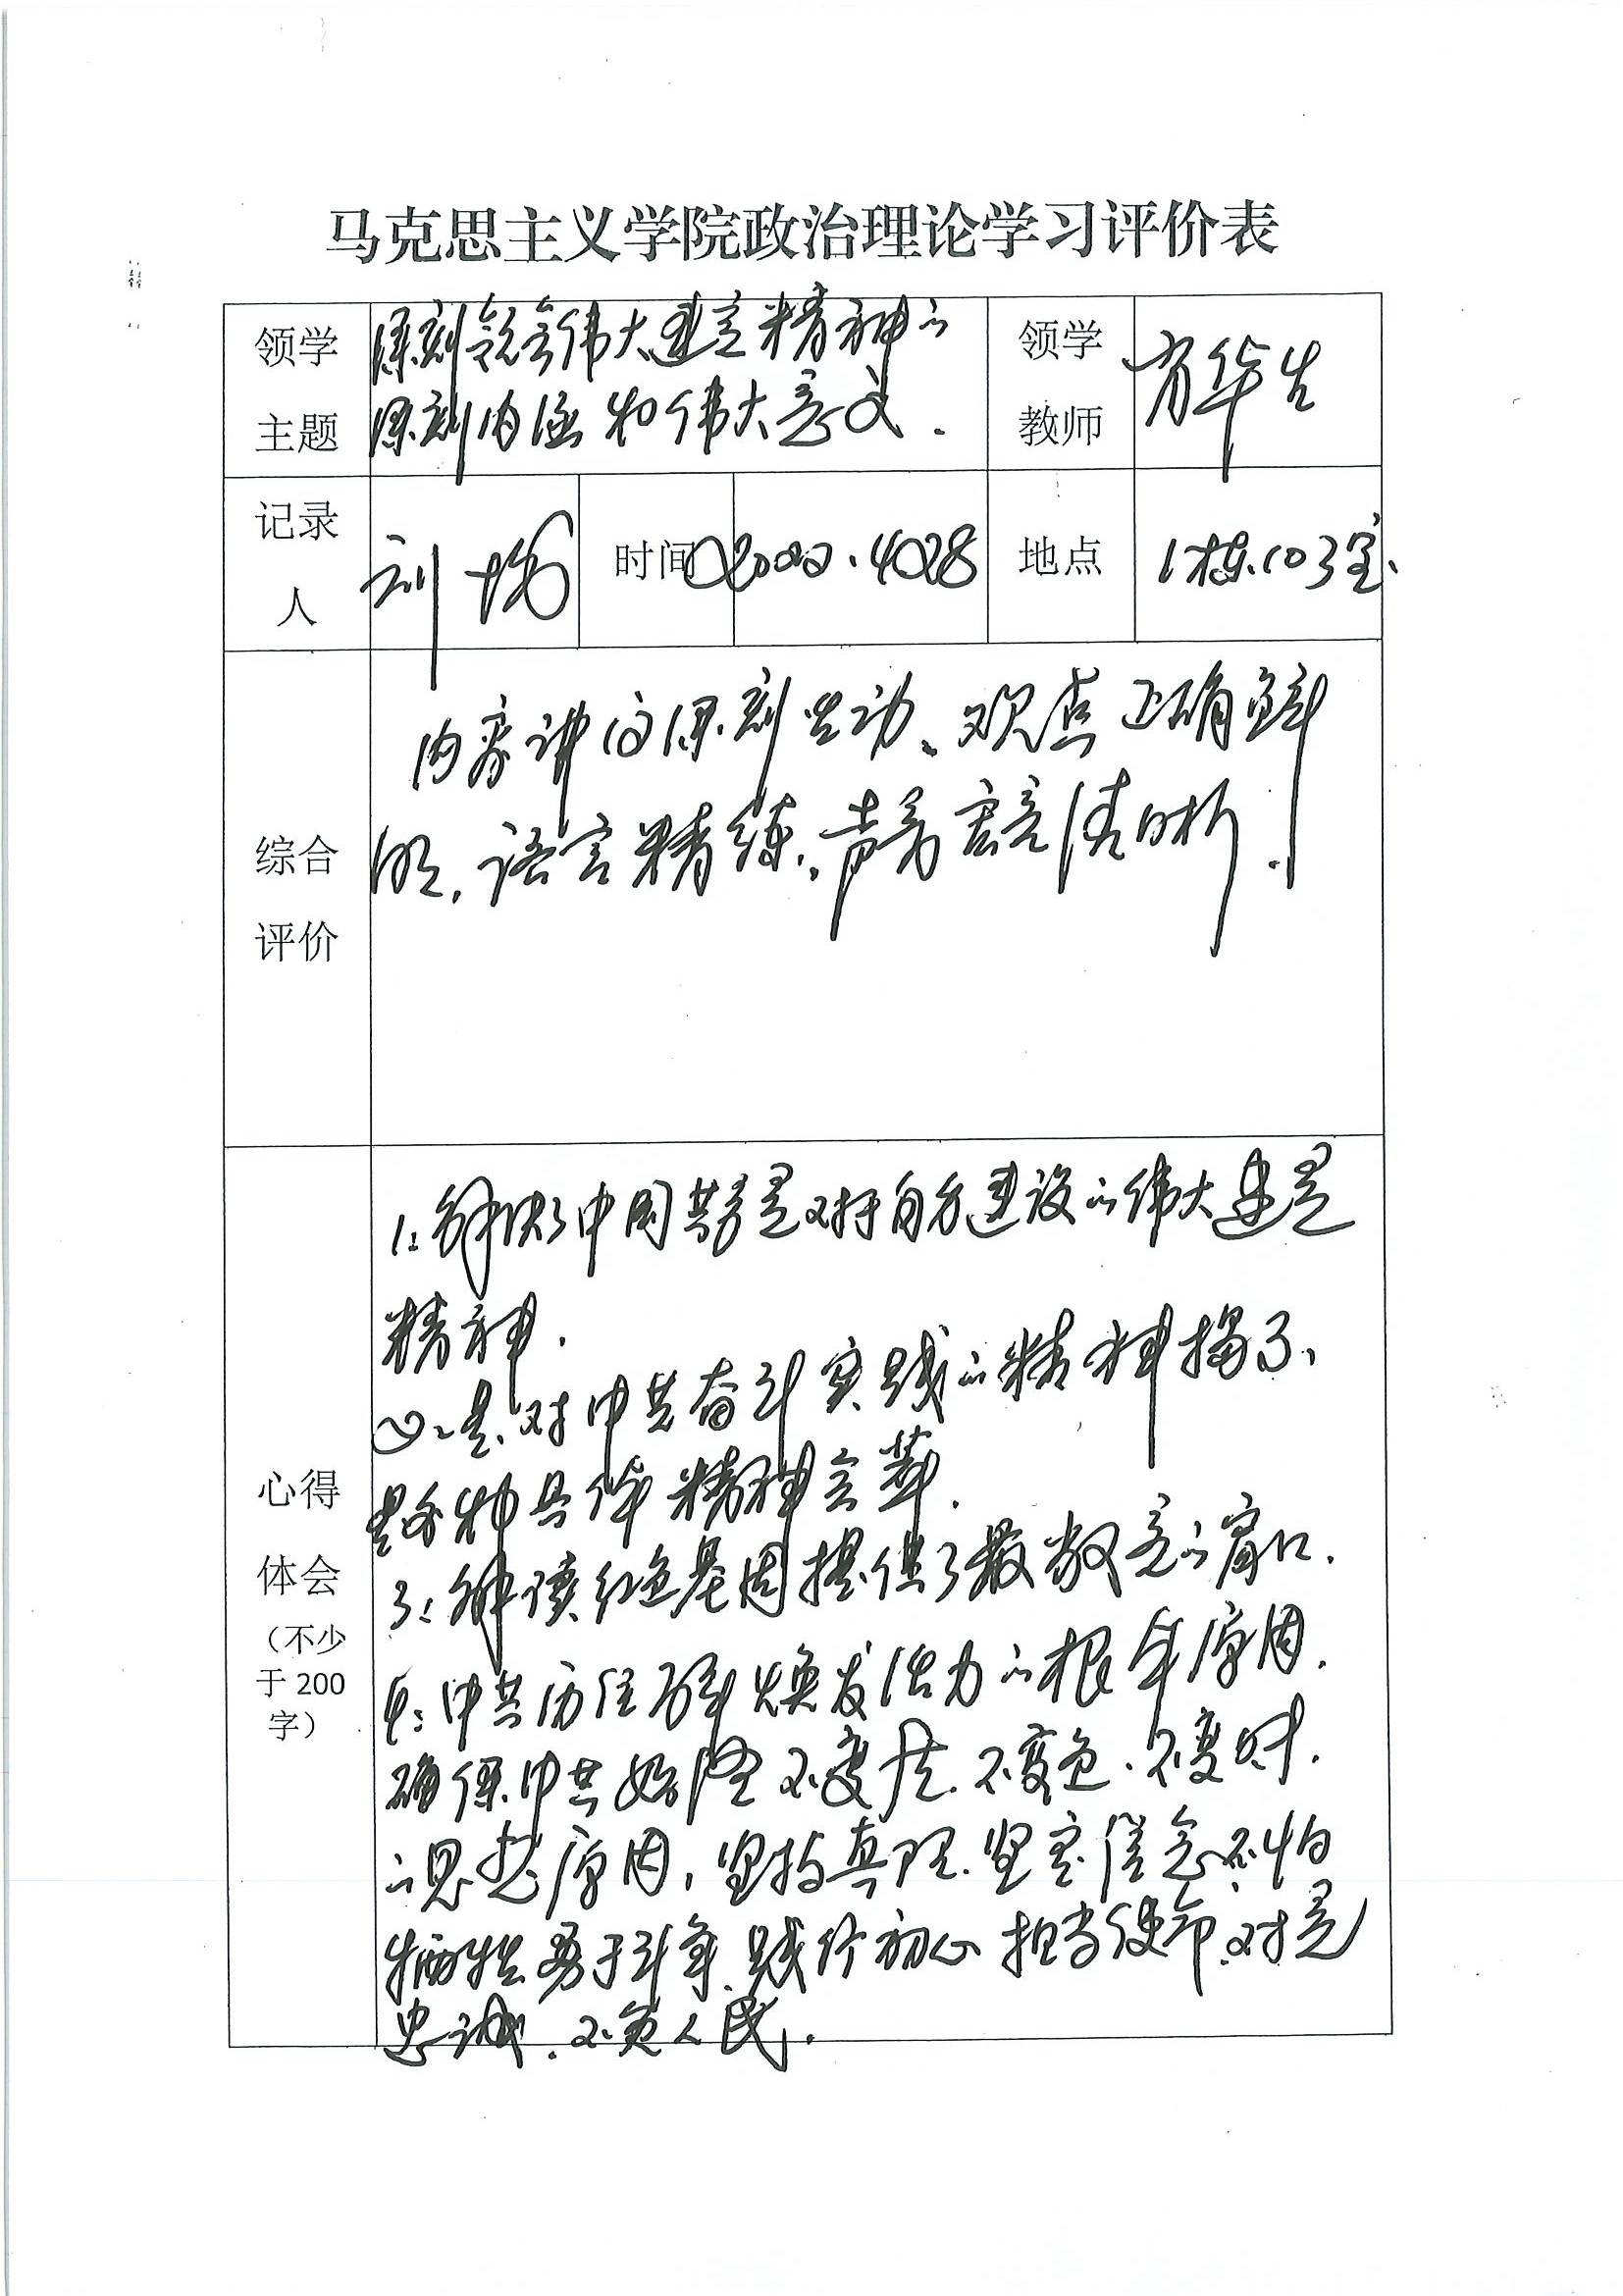 马克思主义学院政治理论学习评价表
领学主题
深刻领会伟大建党精神的
深刻内涵和伟大意义.
领学教师
方华生
记录人
刘
时间
地点
1栋103室
综合评价
内容讲的深刻生动、观点正确鲜
明.语言精练,声音宏亮清晰.
心得体会
(不少于200字)
1:解决了中国共产党对于自身建设的伟大建党
精神.
2:是对中共奋斗实践的精神揭示、
是各种具体精神会萃.
3:解读红色基因提供了最敞亮的窗口.
4:中共历经百年焕发活力的根本原因.
确保中共始终不变质.不变色.不变味.
的思想原因,坚持真理.坚守信念.不怕
牺牲勇于斗争.践行初心担当使命.对党
忠诚.不负人民.